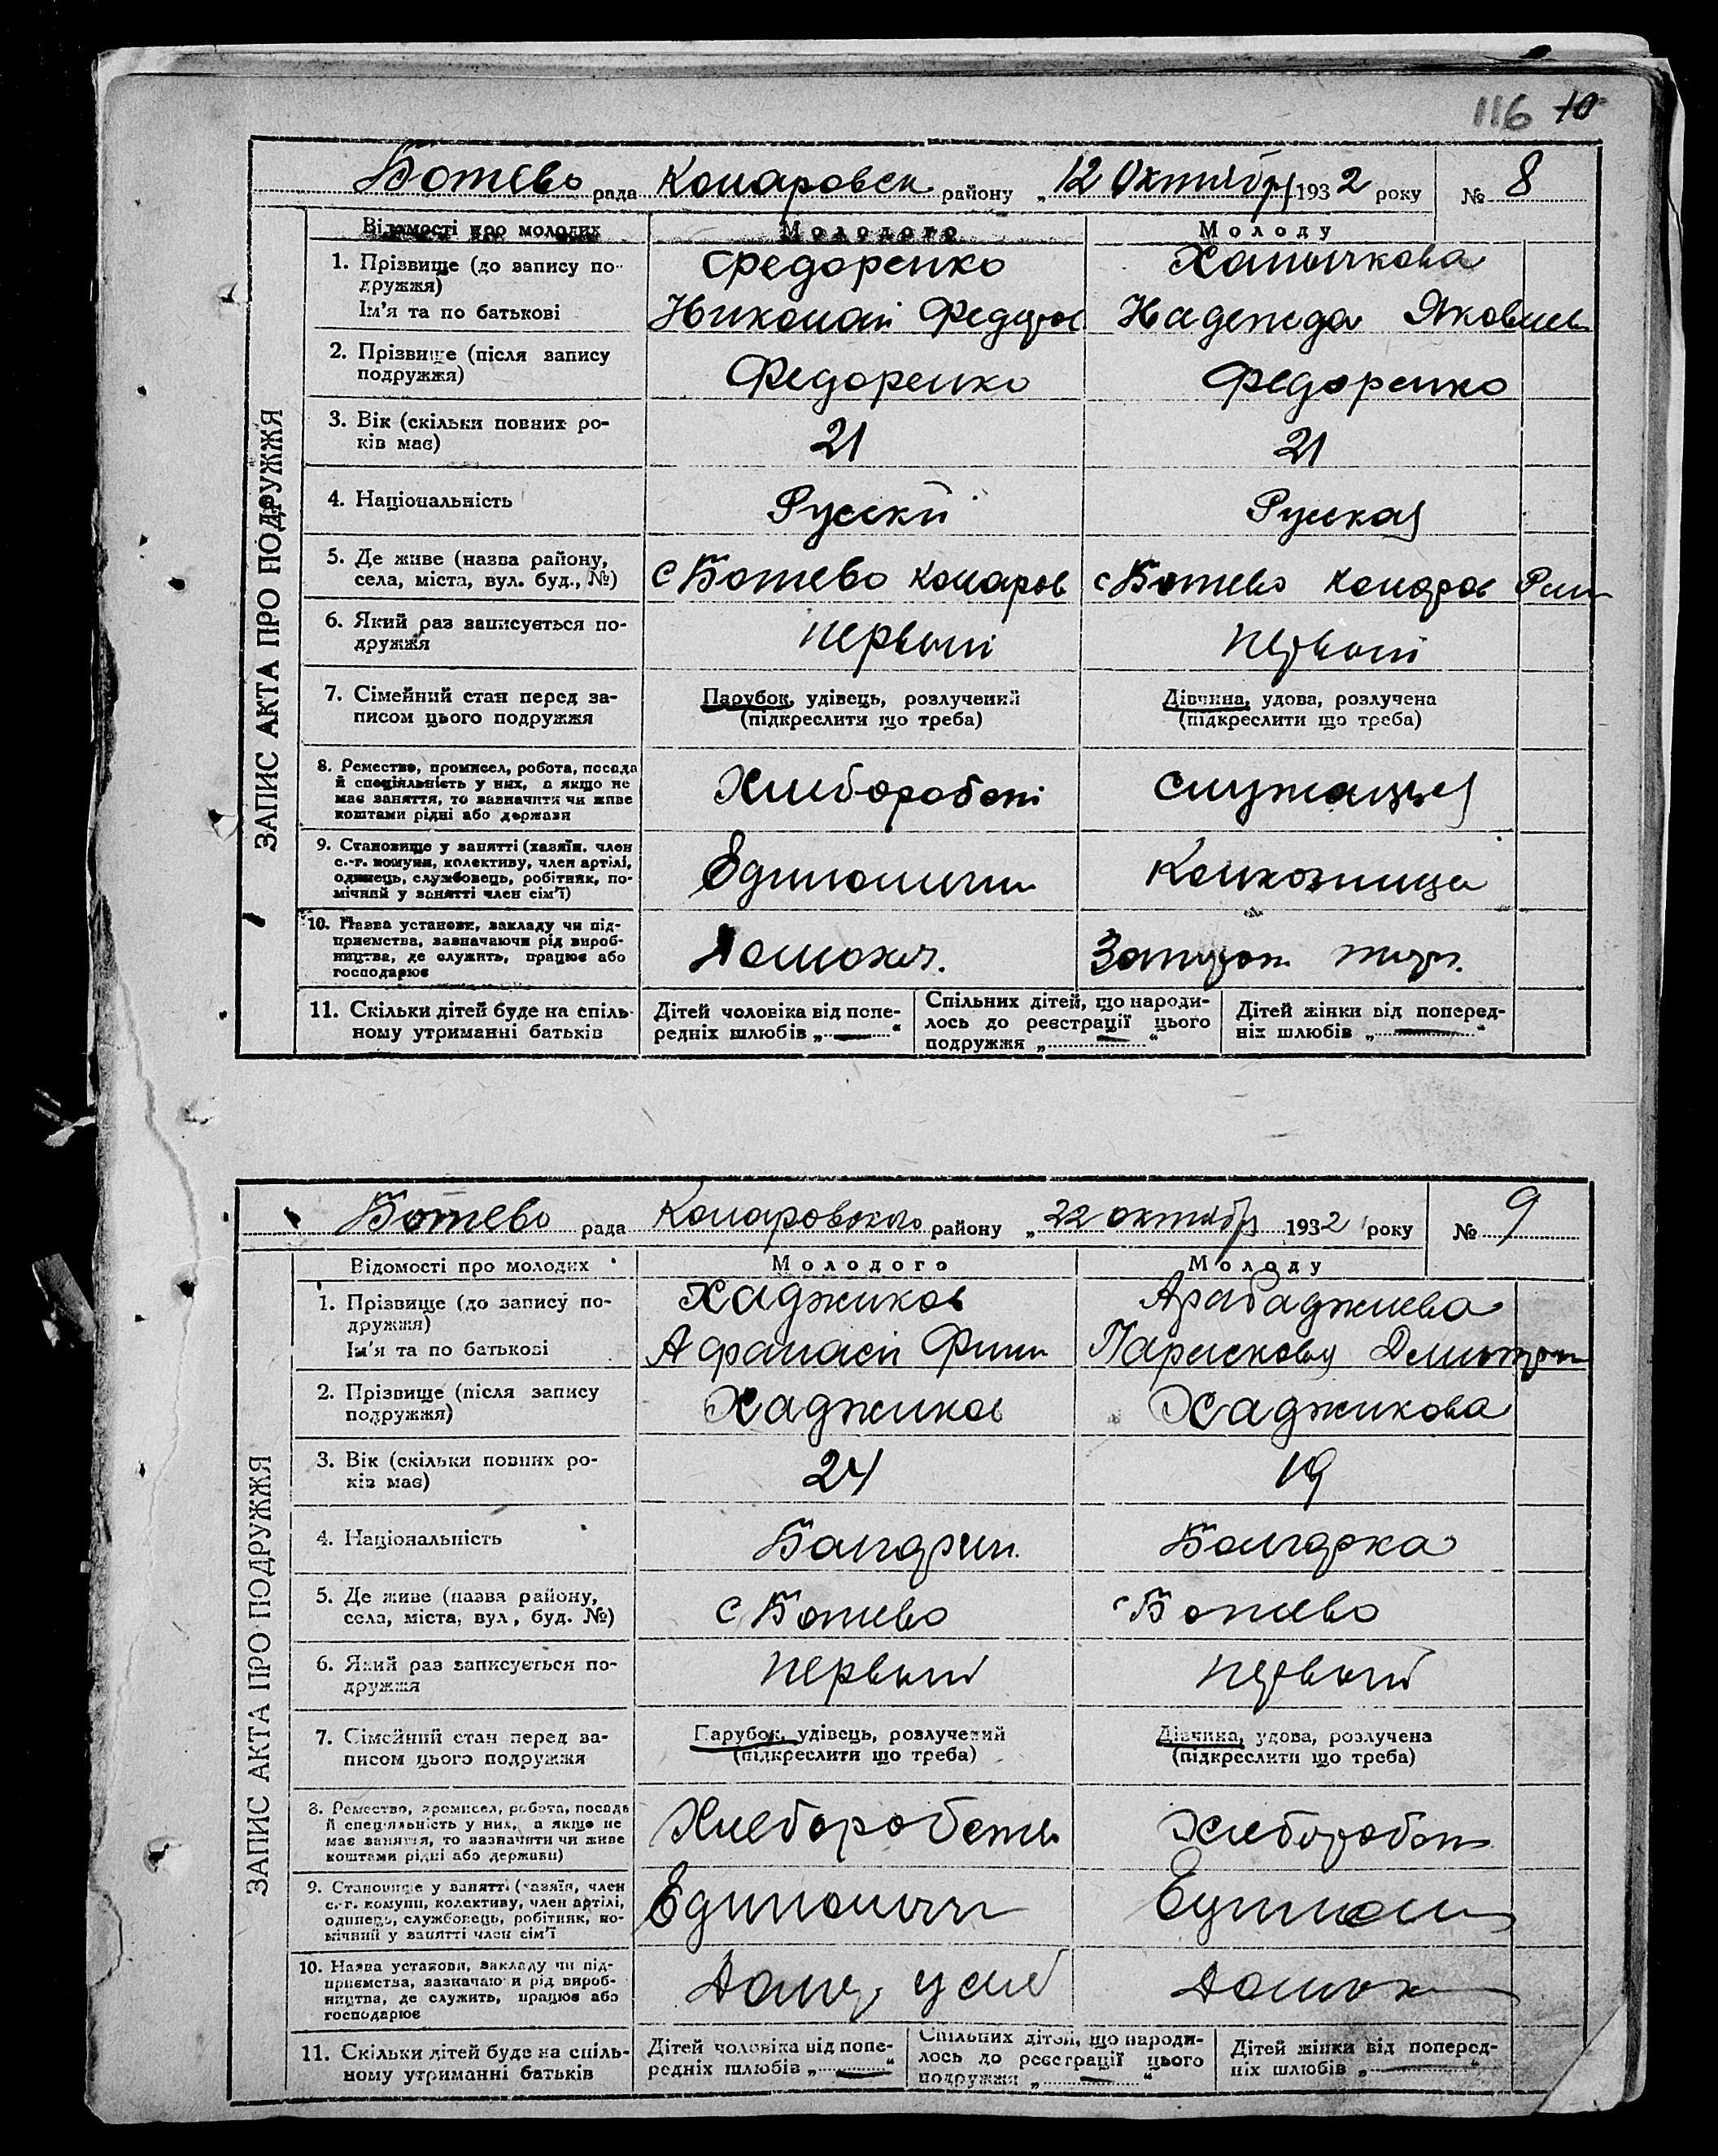 116 10
Ботево рада Комаровск району „12 Октября 1932 року № 8
ЗАПИС АКТА ПРО ПОДРУЖЖЯ
Відомості про молодих Молодого Молоду
1. Прізвище (до запису по-
дружжя)
Федоренко
Ім'я та по батькові Николай Федоров Надежда Яковлев
2. Прізвище (після запису
подружжя)
Федоренко Федоренко
3. Вік (скільки повних ро-
ків має)
21 21
4. Національність Руский Руская
5. Де живе (назва району,
села, міста, вул. буд., №)
с Ботево Комаров с Ботево Комаров
6. Який раз записується по-
дружжя
первый первый
7. Сімейний стан перед за-
писом цього подружжя
Парубок, удівець, розлучений
(підкреслити що треба)
Дівчина, удова, розлучена
(підкреслити що треба)
8. Ремество, промисел, робота, посада
й спеціяльність у них, а якщо не
має заняття, то зазначити чи живе
коштами рідні або держави
служащая
9. Становище у занятті (хазяїн, член
с.-г. комуни, колективу, член артілі,
одинець, службовець, робітник, по-
мічний у занятті член сім'ї)
Колхозница
10. Назва установи, закладу чи під-
приємства, зазначаючи рід вироб-
ництва, де служить, працює або
господарює
Домохоз.
11. Скільки дітей буде на спіль-
ному утриманні батьків
Дітей чоловіка від попе-
редніх шлюбів „ — “
Спільних дітей, що народи-
лось до реєстрації цього
подружжя „ — “
Дітей жінки від поперед-
ніх шлюбів „ — “
Ботево рада Комаровского району „22 октября 1932 року № 9
ЗАПИС АКТА ПРО ПОДРУЖЖЯ
Відомості про молодих Молодого Молоду
1. Прізвище (до запису по-
дружжя)
Хаджиков Арабаджиева
Ім'я та по батькові Афанасий Фили Дмитри
2. Прізвище (після запису
подружжя)
Хаджиков Хаджикова
3. Вік (скільки повних ро-
ків має)
24 19
4. Національність Болгарин. Болгарка
5. Де живе (назва району,
села, міста, вул, буд. №)
с Ботево с Ботево
6. Який раз записується по-
дружжя
первый первый
7. Сімейний стан перед за-
писом цього подружжя
Парубок, удівець, розлучений
(підкреслити що треба)
Дівчина, удова, розлучена
(підкреслити що треба)
8. Ремество, промисел, робота, посада
й спеціяльність у них, а якщо не
має заняття, то зазначити чи живе
коштами рідні або держави)
Хлеборобств
9. Становище у занятті (хазяїн, член
с.-г. комуни, колективу, член артілі,
одинець, службовець, робітник, по-
мічний у занятті член сім'ї
10. Назва установи, закладу чи під-
приємства, зазначаючи рід вироб-
ництва, де служить, працює або
господарює
11. Скільки дітей буде на спіль-
ному утриманні батьків
Дітей чоловіка від попе-
редніх шлюбів „ — “
Спільних дітей, що народи-
лось до реєстрації цього
подружжя „ — “
Дітей жінки від поперед-
ніх шлюбів „ — “